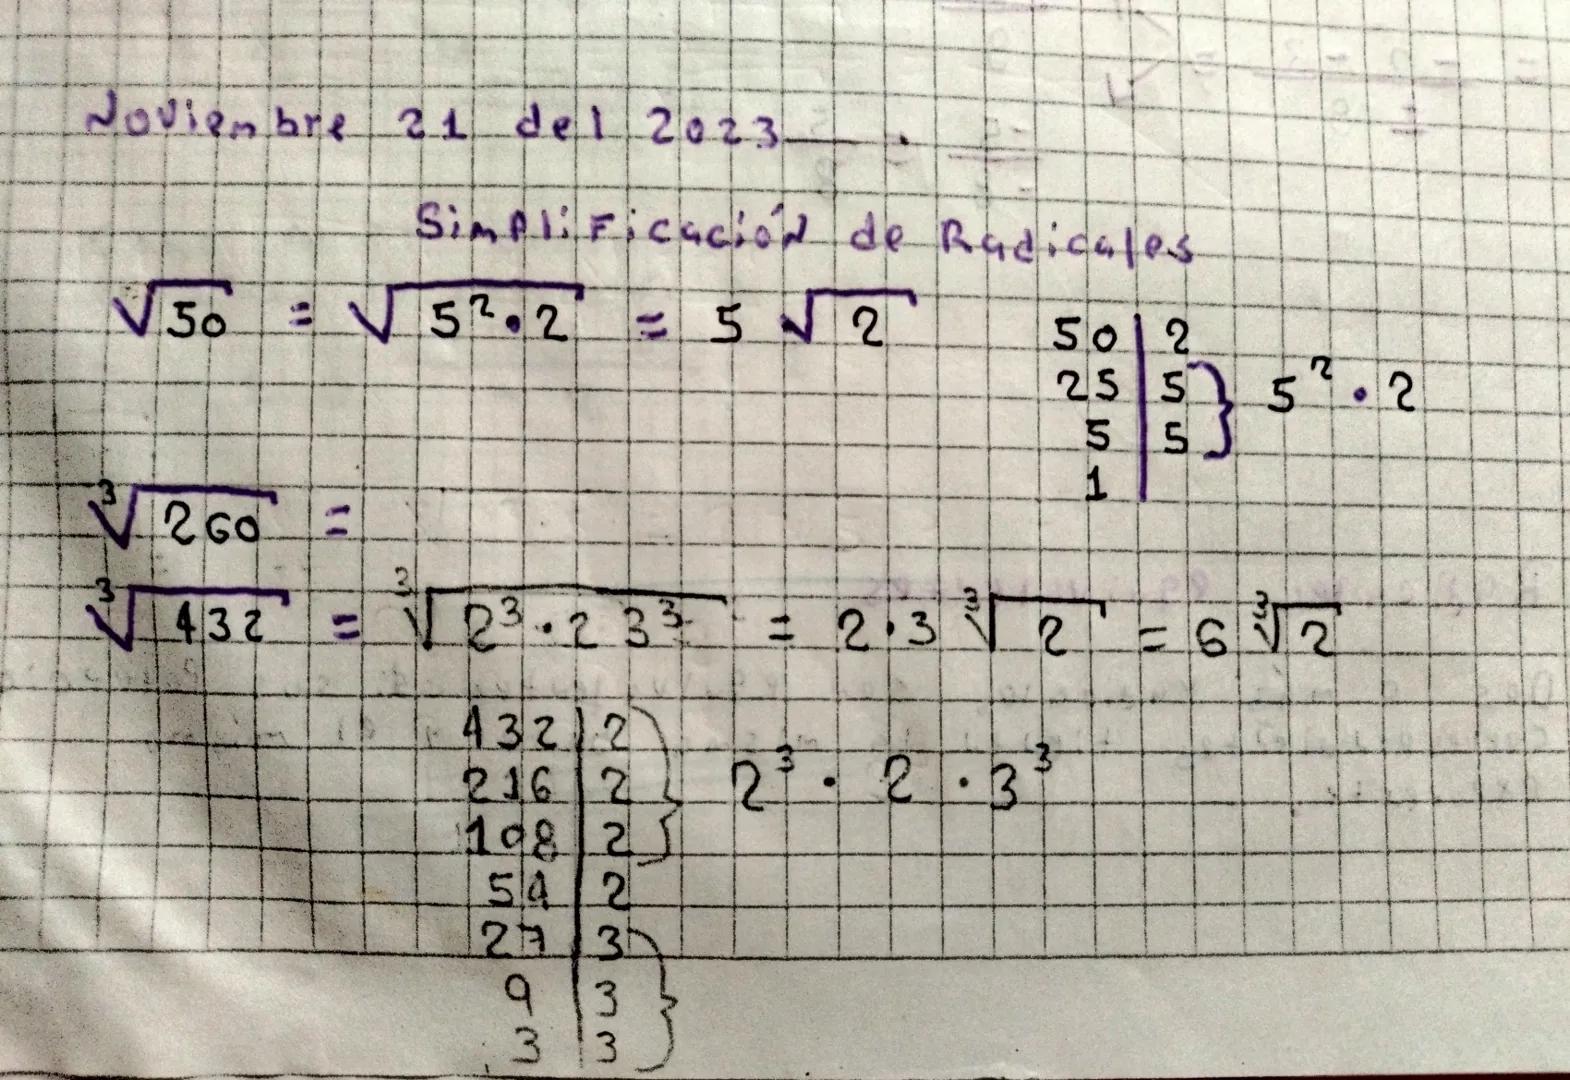 Noviembre 21 del 2023
Simplificación de Radicales
√50 = √5²·2 = 5 √2
50 | 2
25 | 5
5 | 5
1
} 5² · 2
³√260 =
³√432 = ³√2³·2 3³ = 2·3 ³√2 = 6 ³√2
432 | 2
216 | 2
108 | 2
54 | 2
27 | 3
9 | 3
3 | 3
} 2³ · 2 · 3³